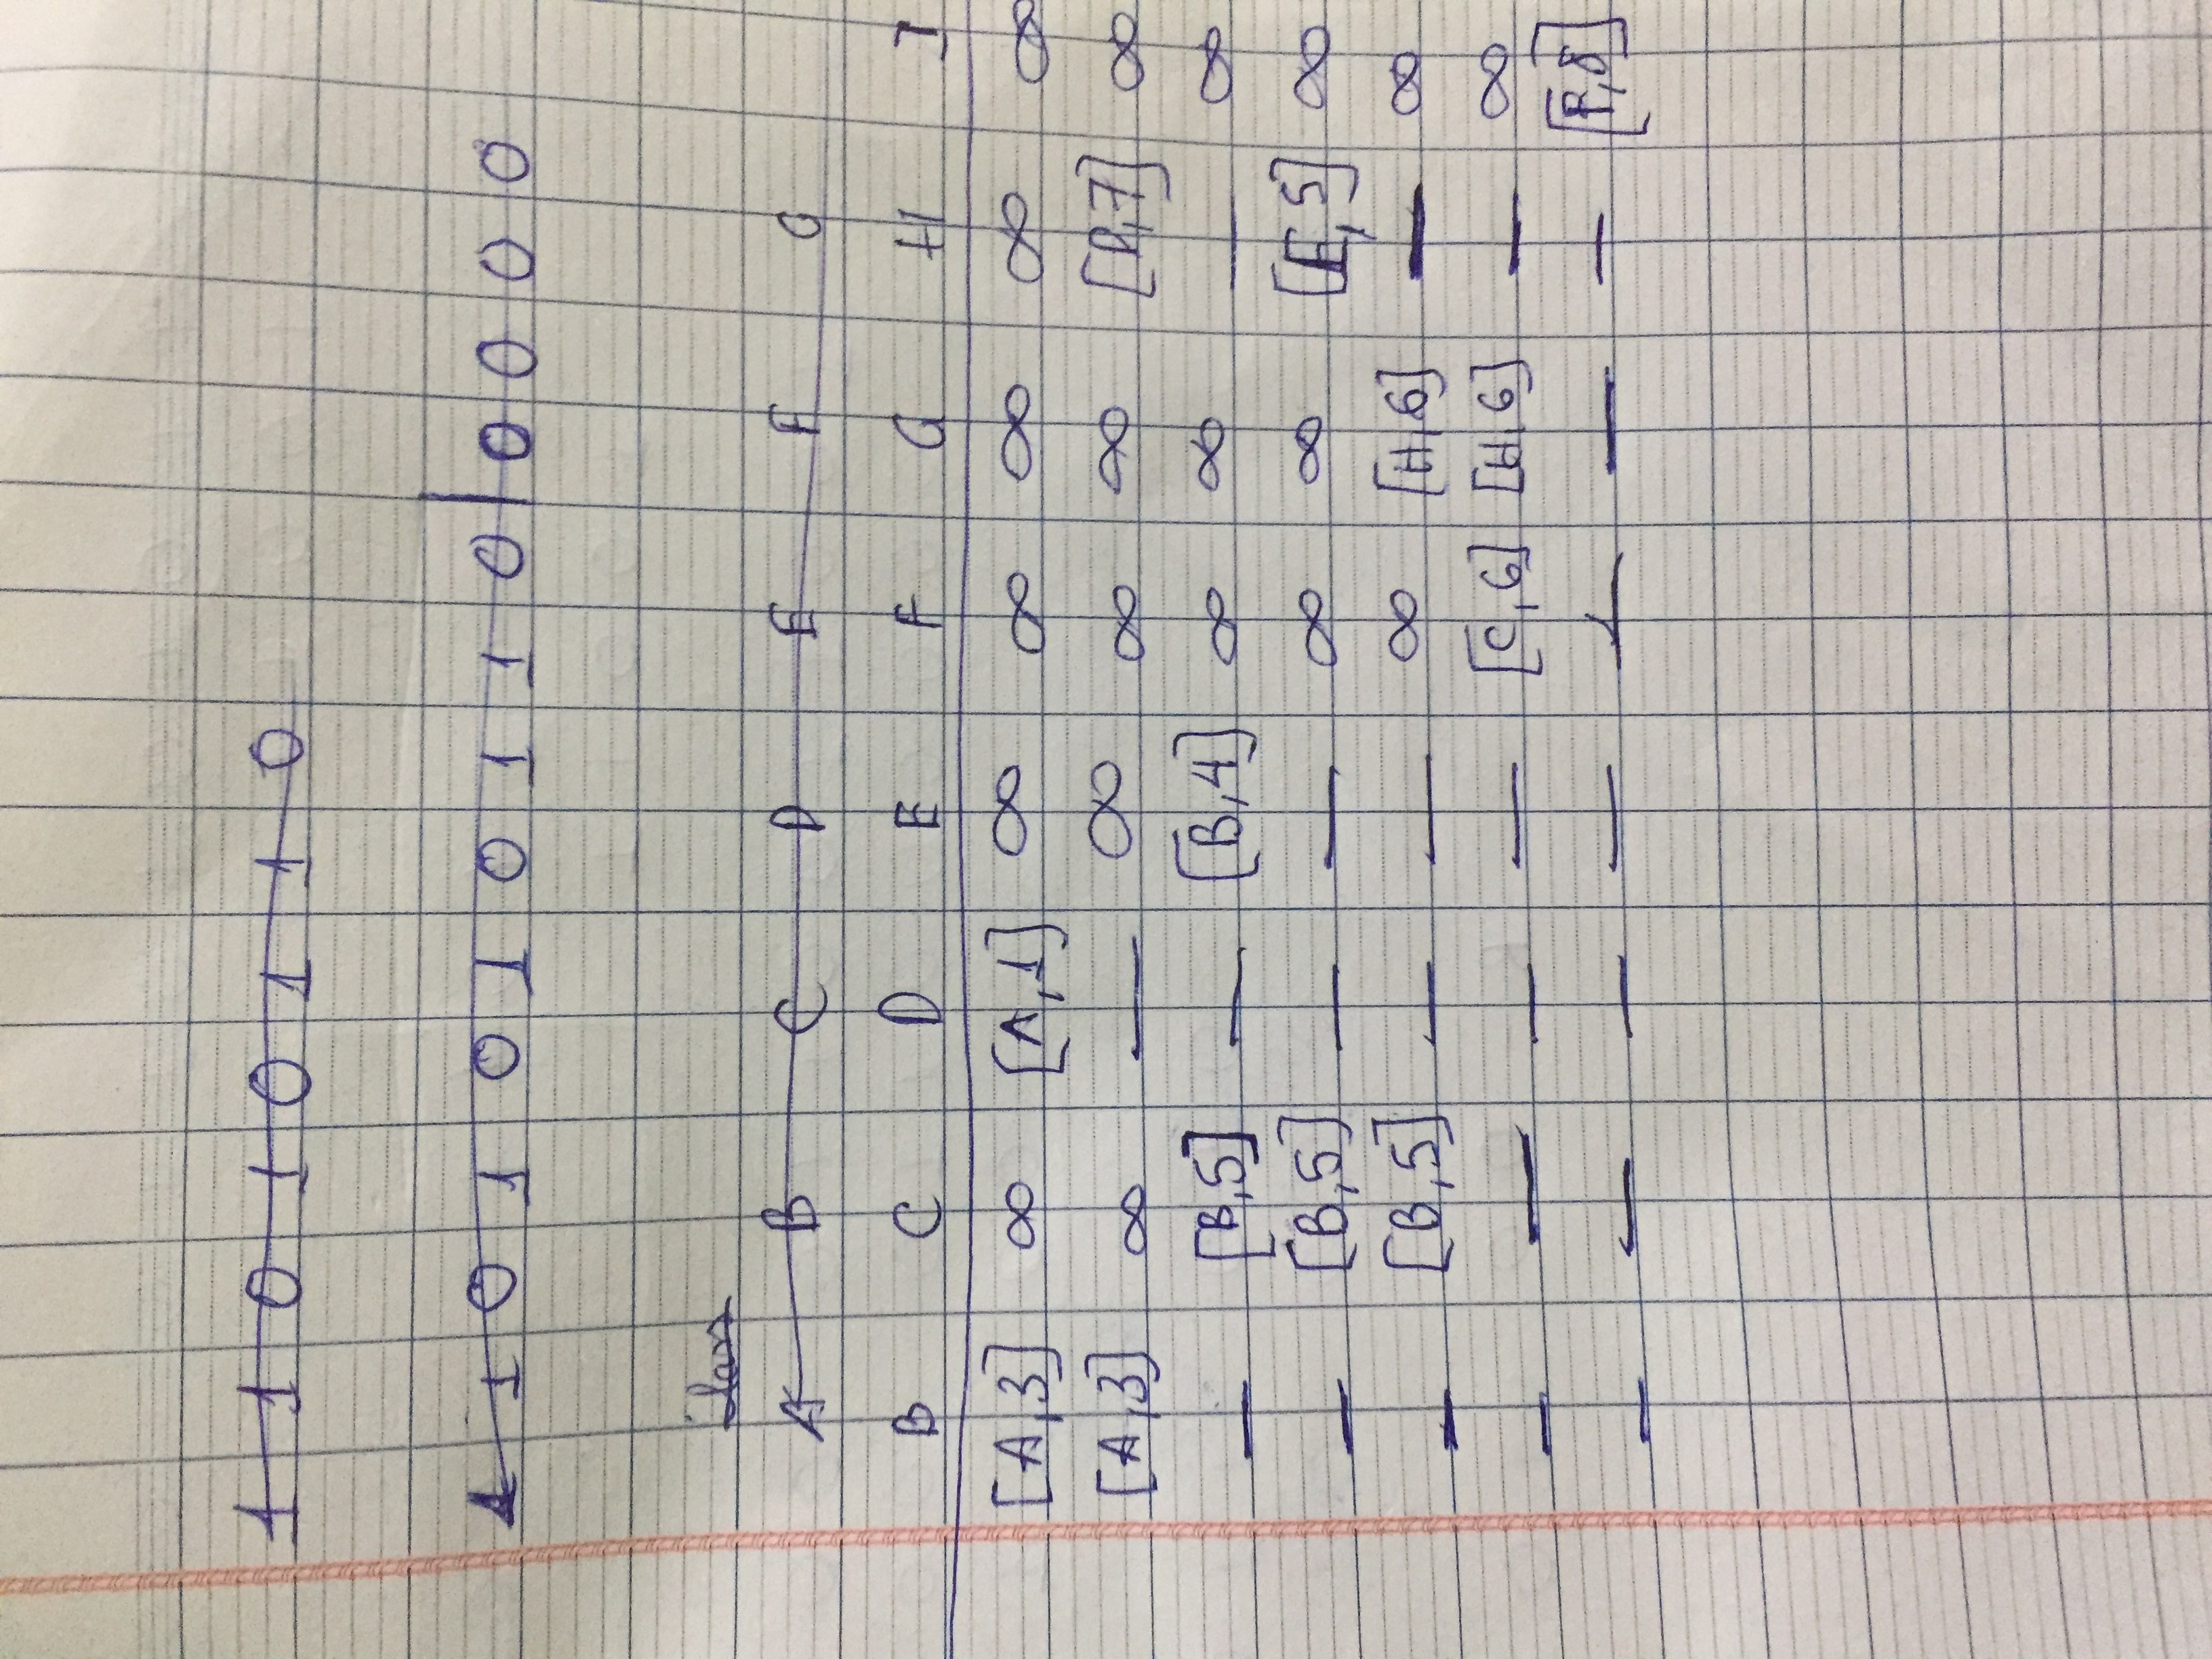 1 1 0 1 0 1 1 0
1 1 0 1 0 1 0 1 1 0 | 0 0 0 0
A B C D E F G
B C D E F G H I
[A,3] ∞ [A,1] ∞ ∞ ∞ ∞ ∞
[A,3] ∞ — ∞ ∞ ∞ [D,7] ∞
— [B,5] — [B,4] ∞ ∞ — ∞
— [B,5] — — ∞ ∞ [E,5] ∞
— [B,5] — — ∞ [H,6] — ∞
— — — — [C,6] [H,6] — ∞
— — — — — — — [F,8]